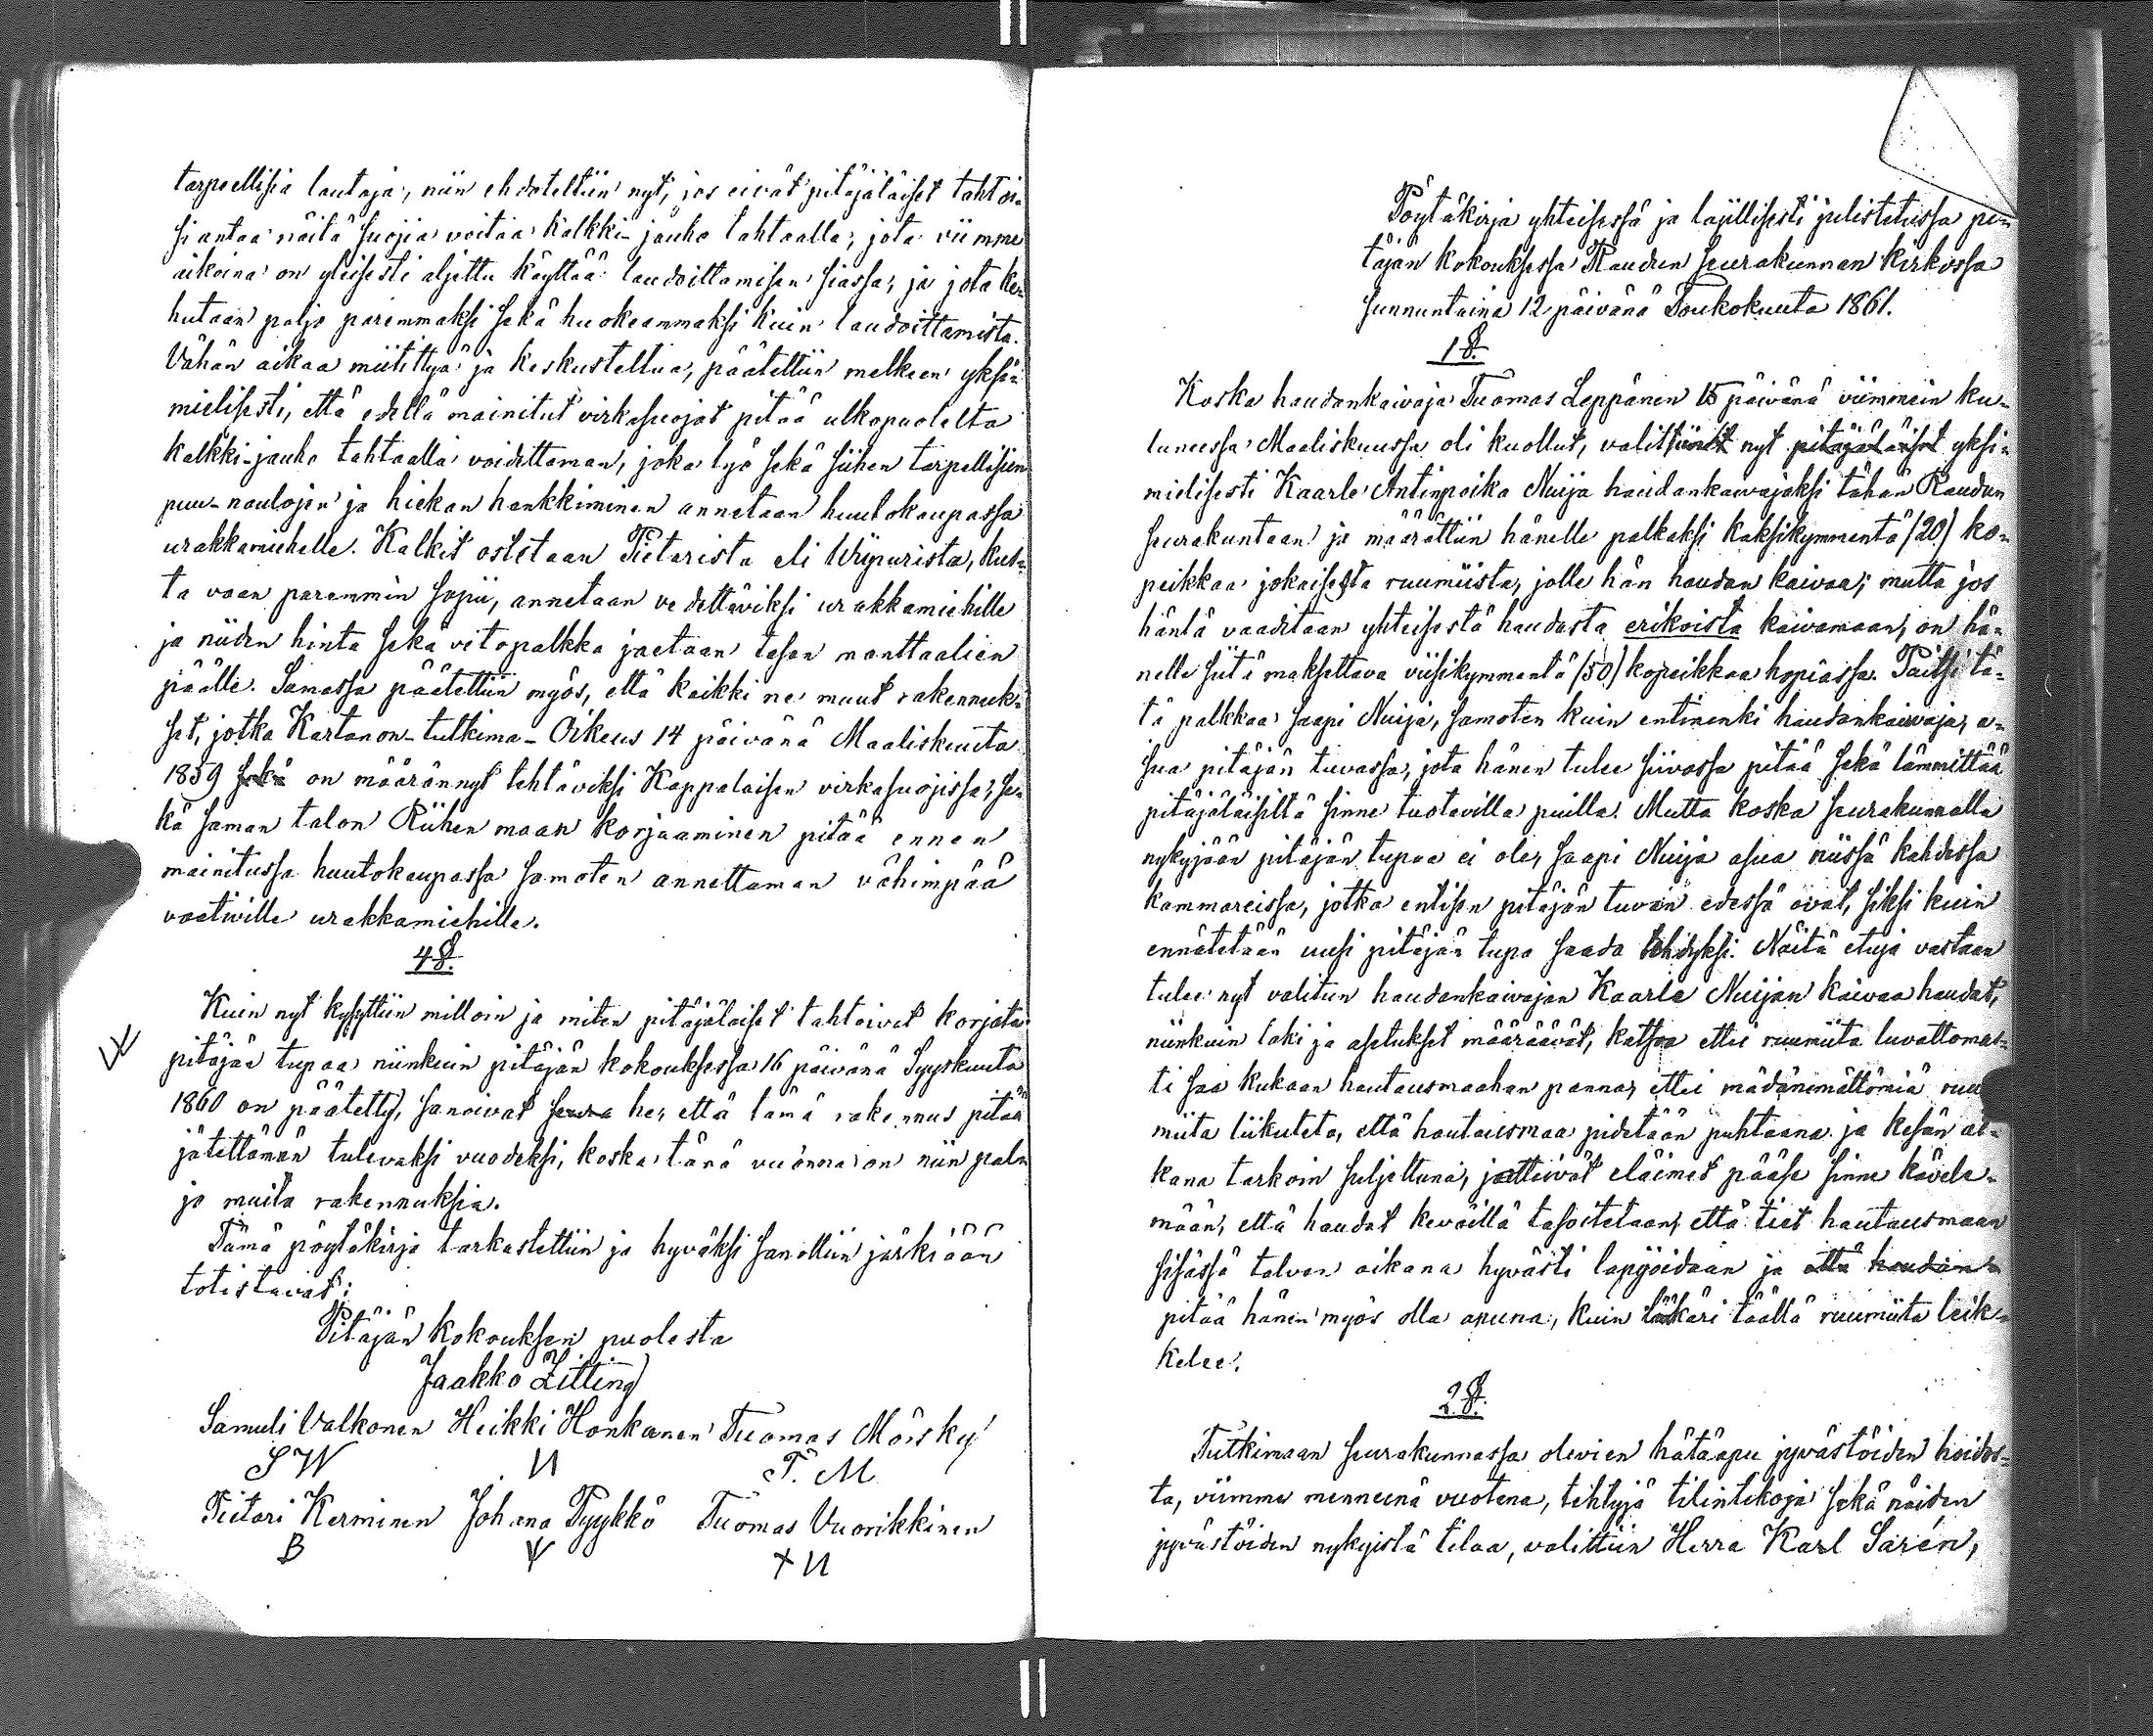 tarpeellisia lautoja, niin ehdoteltiin nyt, jos eivät pitäjäläiset tahtoi=
si antaa näitä suojia voitaa kalkki-jauho tahtaalla, jota viimme
aikoina on yleisesti aljettu käyttää laudoittamisen siassa, ja jota ke=
hutaan paljo paremmaksi sekä huokeammaksi kuin laudoittamista.
Vähän aikaa miitittyä ja keskusteltua, päätettiin melkeen yksi=
mielisesti, että edellä mainitut virkasuojat pitää ulkopuolelta
kalkki-jauho tahtaalla voidettaman, joka työ sekä siihen tarpellisiin
puu-naulojen ja hiekan hankkiminen annetaan huutokaupassa
urakkamiehelle. Kalkit ostetaan Pietarista eli Wiipurista, kus=
ta vaan paremmin sopii, annetaan vedettäviksi urakkamiehille
ja niiden hinta sekä vetopalkka jaetaan tasan manttaalien
päälle. Samassa päätettiin myös, että kaikki ne muut rakennuk=
set, jotka Kartanon-tutkima-Oikeus 14 päivänä Maaliskuuta
1859 sekä on määrännyt tehtäviksi Kappalaisen virkasuojissa, se=
kä saman talon Riihen maan korjaaminen pitää ennen
mainitussa huutokaupassa samoten annettaman vähimpää
vaativille urakkamiehille.
4 §.
Kuin nyt kysyttiin milloin ja miten pitäjäläiset tahtoivat korjata
pitäjän tupaa niinkuin pitäjän kokouksessa 16 päivänä Syyskuuta
1860 on päätetty, sanoivat seura he, että tämä rakennus pitää
jätettämän tulevaksi vuodeksi, koska tänä vuonna on niin pal=
jo muita rakennuksia.
Tämä pöytäkirja tarkastettiin ja hyväksi sanottiin järkiään
totistavat:
Pitäjän kokouksen puolesta
Jaakko Zitting
Samuli Valkonen Heikki Honkanen Tuomas Mörsky
S W И T. M
Pietari Kerminen Johana Pyykkö Tuomas Vuorikkinen
B Ψ + И
Pöytäkirja yhteisessä ja laillisesti julistetussa pi=
täjän kokouksessa Raudun seurakunnan kirkossa
sunnuntaina 12 päivänä Toukokuuta 1861.
1 §.
Koska haudankaivaja Tuomas Leppänen 15 päivänä viimmein ku=
luneessa Maaliskuussa oli kuollut, valittiin nyt pitäjäläiset yksi=
mielisesti Kaarle Antinpoika Nuija haudankaivajaksi tähän Raudun
seurakuntaan ja määrättiin hänelle palkaksi kaksikymmentä (20) ko=
peikkaa jokaisesta ruumiista, jolle hän haudan kaivaa; mutta jos
häntä vaaditaan yhteisestä haudasta erikoista kaivamaan, on hä=
nelle siitä maksettava viisikymmentä (50) kopeikkaa hopiassa. Paitsi tä=
tä palkkaa saapi Nuija, samoten kuin entinenki haudankaivaja, a=
sua pitäjän tuvassa, jota hänen tulee siivossa pitää sekä lämmittää
pitäjäläisiltä sinne tuotavilla puilla. Mutta koska seurakunnalla
nykyjään pitäjän tupaa ei ole, saapi Nuija asua niissä kahdessa
kammareissa, jotka entisen pitäjän tuvan edessä ovat, siksi kuin
ennätetään uusi pitäjän tupa saada tehdyksi. Näitä etuja vastaan
tulee nyt valitun haudankaivajan Kaarle Nuijan kaivaa haudat,
niinkuin laki ja asetukset määräävät, katsoa ettei ruumiita luvattomas=
ti saa kukaan hautausmaahan panna, ettei mädänemättömiä ruu
miita liikuteta, että hautausmaa pidetään puhtaana ja kesän ai=
kana tarkoin suljettuna, jotteivät eläimet pääse sinne kävele=
mään, että haudat keväillä tasoitetaan, että tiet hautausmaan
sisässä talven aikana hyvästi lapijoidaan ja että haudan=
pitää hänen myös olla apuna, kuin lääkäri täällä ruumiita leik=
kelee.
2 §.
Tutkimaan seurakunnassa olevien hätäapu jyvästöiden hoidos=
ta, viimme menneenä vuotena, tehtyjä tilintekoja sekä näiden
jyvästöiden nykyistä tilaa, valittiin Herra Karl Sarén,